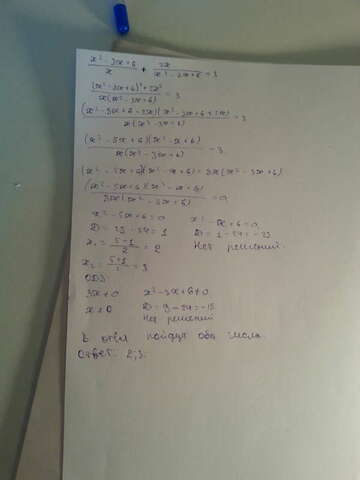 x²-3x+6/x + 2x/x²-3x+6 = 3
(x²-3x+6)²+2x²/x(x²-3x+6) = 3
(x²-3x+6-2x)(x²-3x+6+2x)/x(x²-3x+6) = 3
(x²-5x+6)(x²-x+6)/x(x²-3x+6) = 3
(x²-5x+6)(x²-x+6) = 3x(x²-3x+6)
(x²-5x+6)(x²-x+6)/3x(x²-3x+6) = 0
x²-5x+6=0 x²-x+6=0
D=25-24=1 D=1-24=-23
x₁=5-1/2=2 Нет решений.
x₂=5+1/2=3
ОДЗ:
3x≠0 x²-3x+6≠0
x≠0 D=9-24=-15
Нет решений
В ответ пойдут оба числа
Ответ: 2;3.